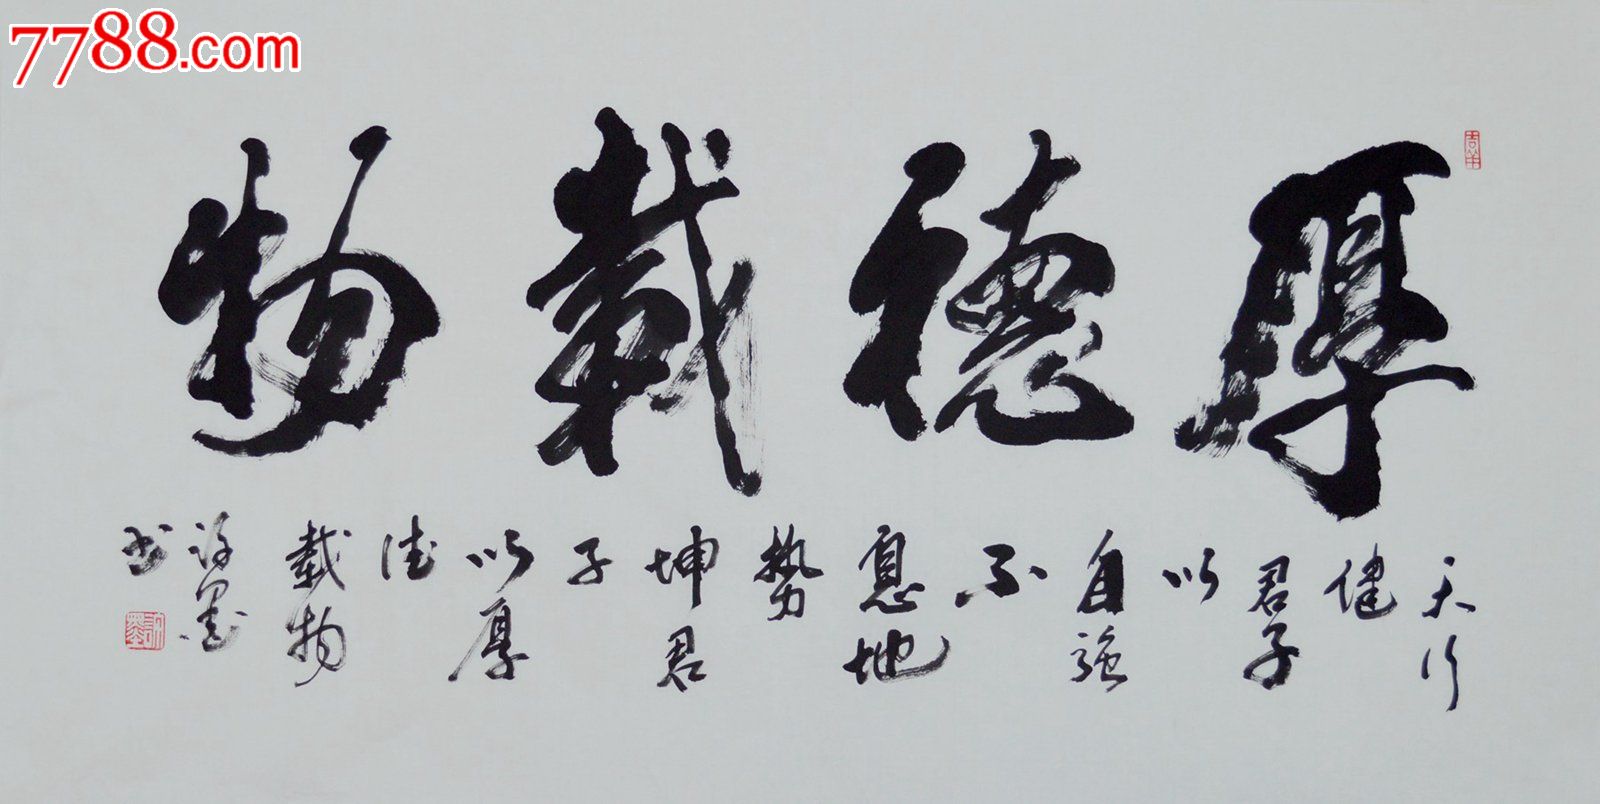 7788.com
厚德載物
天行
健
君子
以
自強
不
息地
勢
坤君
子
以厚
德
載物
許墨
书